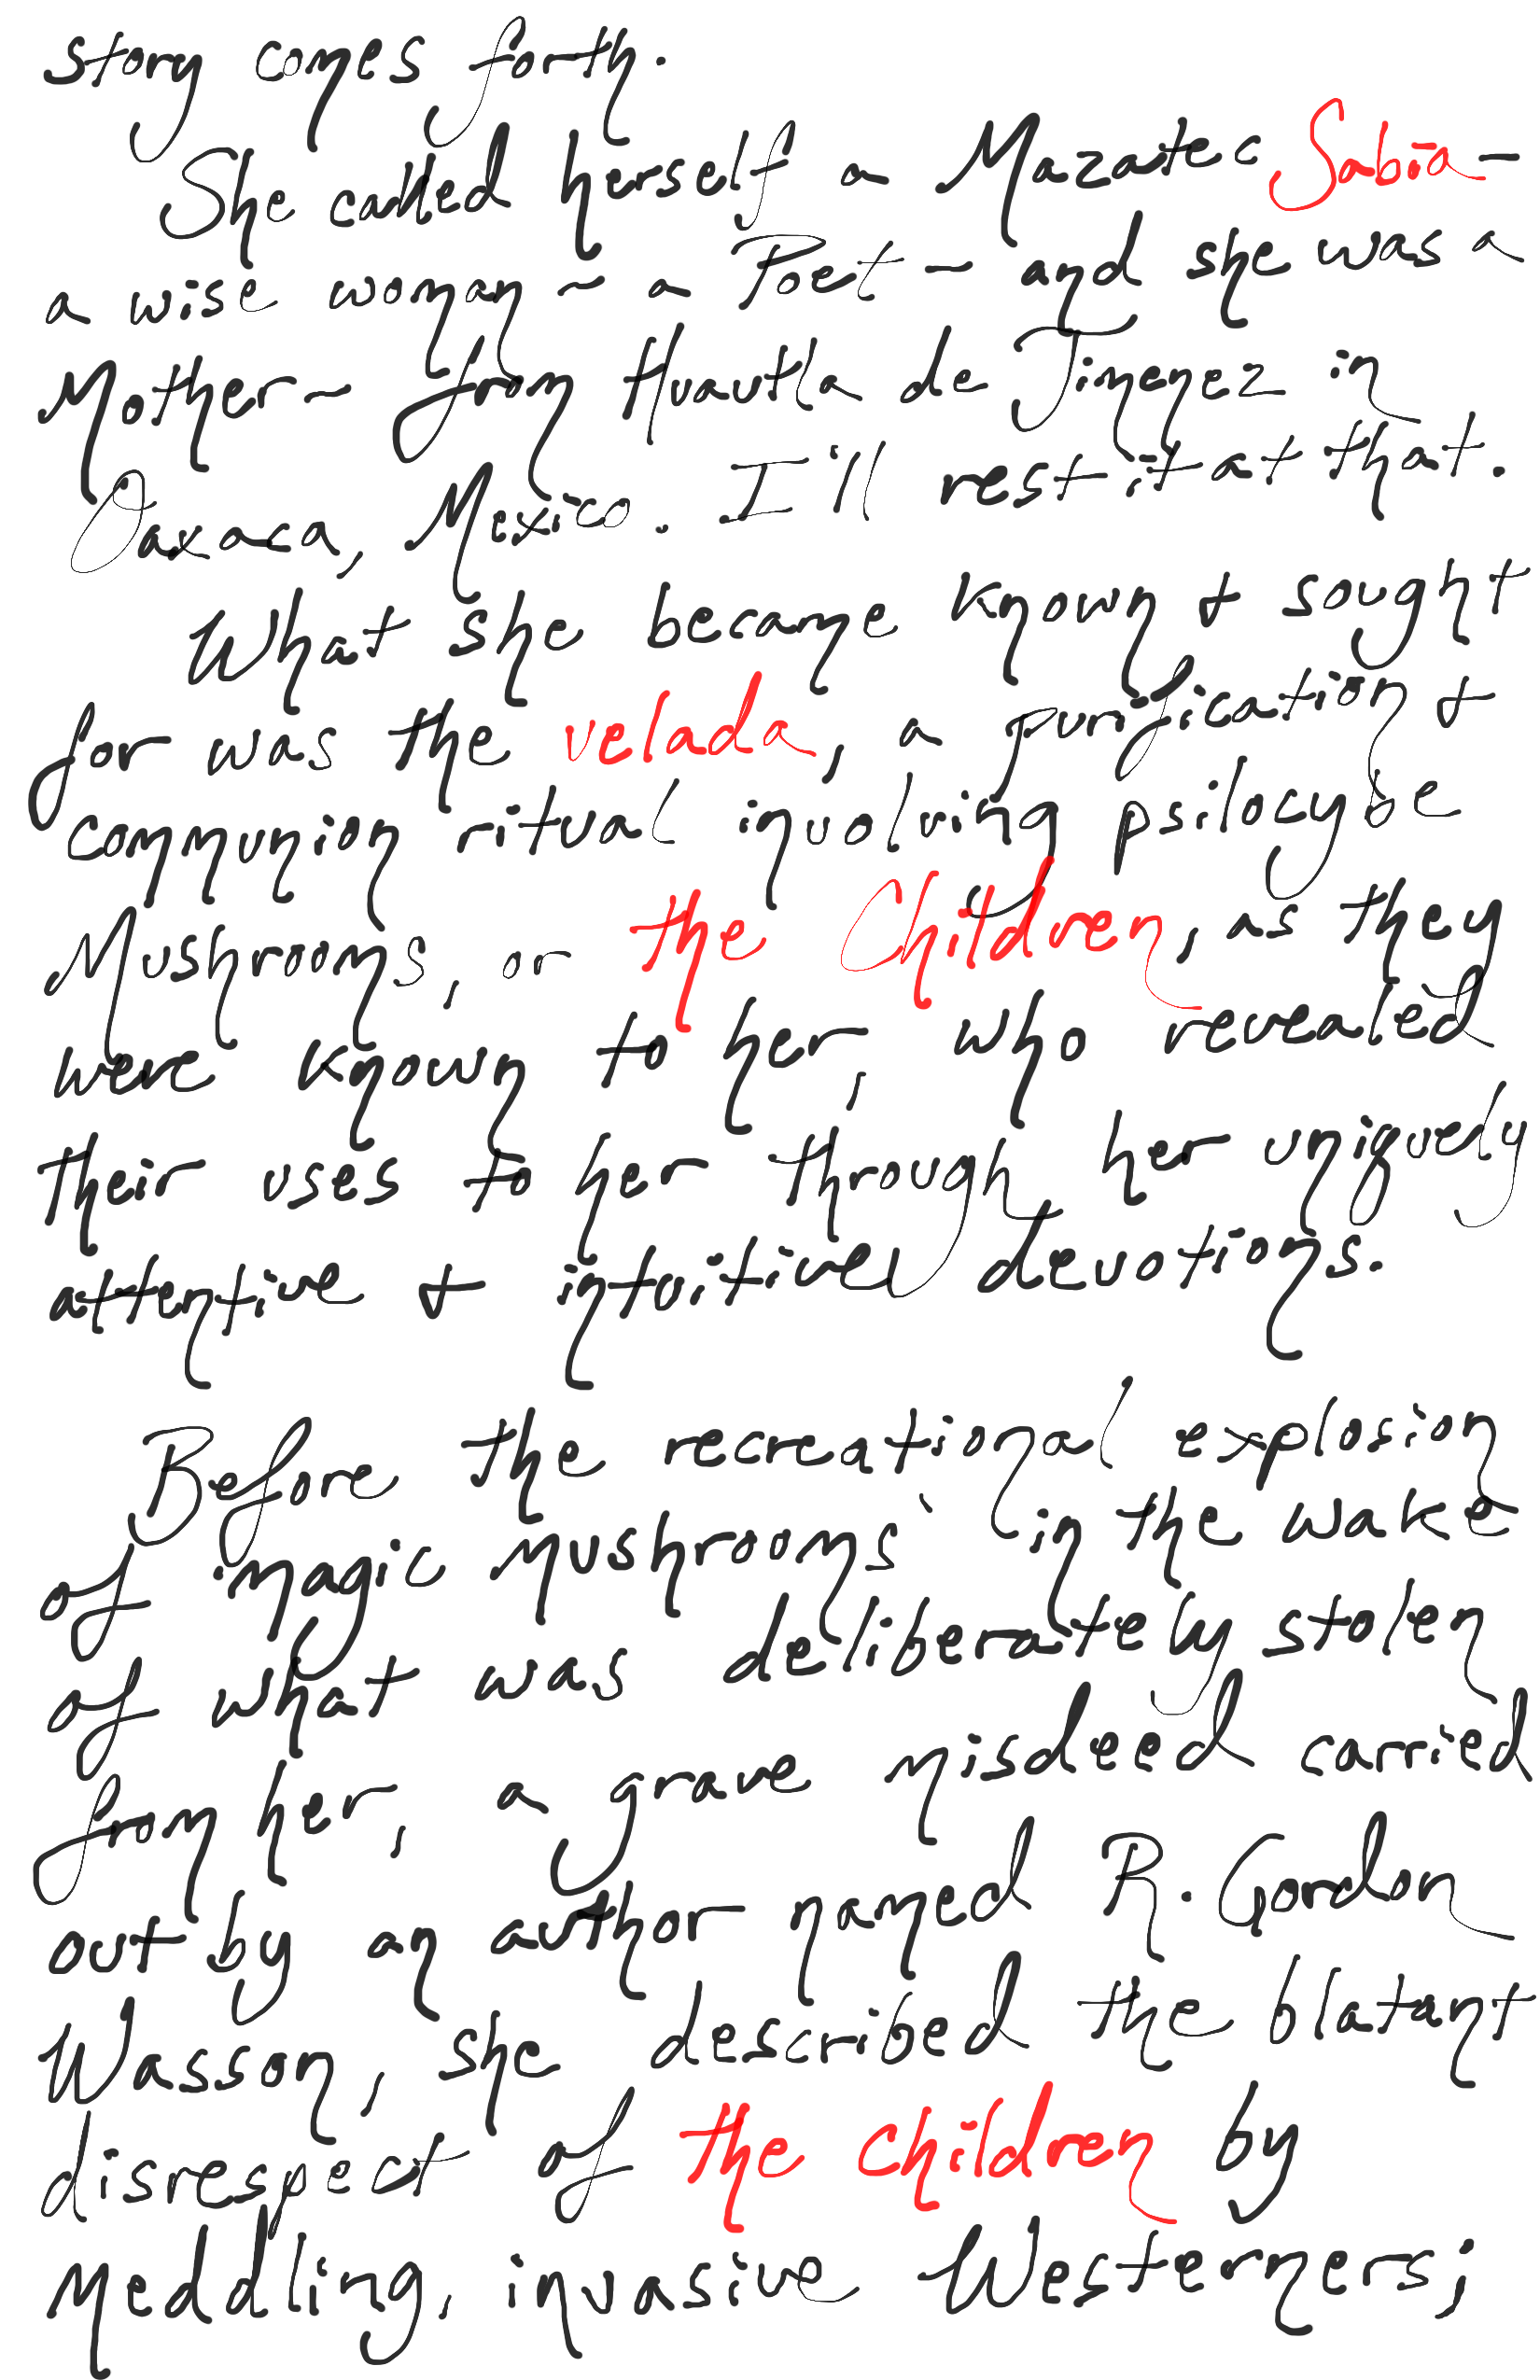 story comes forth.
She called herself a Mazatec Sabia -
a wise woman - a Poet - and she was a
Mother - from Huautla de Jimenez in
Oaxaca, Mexico. I'll rest it at that.
What she became known & sought
for was the velada, a purification &
communion ritual involving psilocybe
Mushrooms, or the Children, as they
were known to her, who revealed
their uses to her through her uniquely
attentive & intuitive devotions.
Before the recreational explosion
of 'magic mushrooms' in the wake
of what was deliberately stolen
from her, a grave misdeed carried
out by an author named R. Gordon
Wasson, she described the blatant
disrespect of the children by
meddling, invasive Westerners;